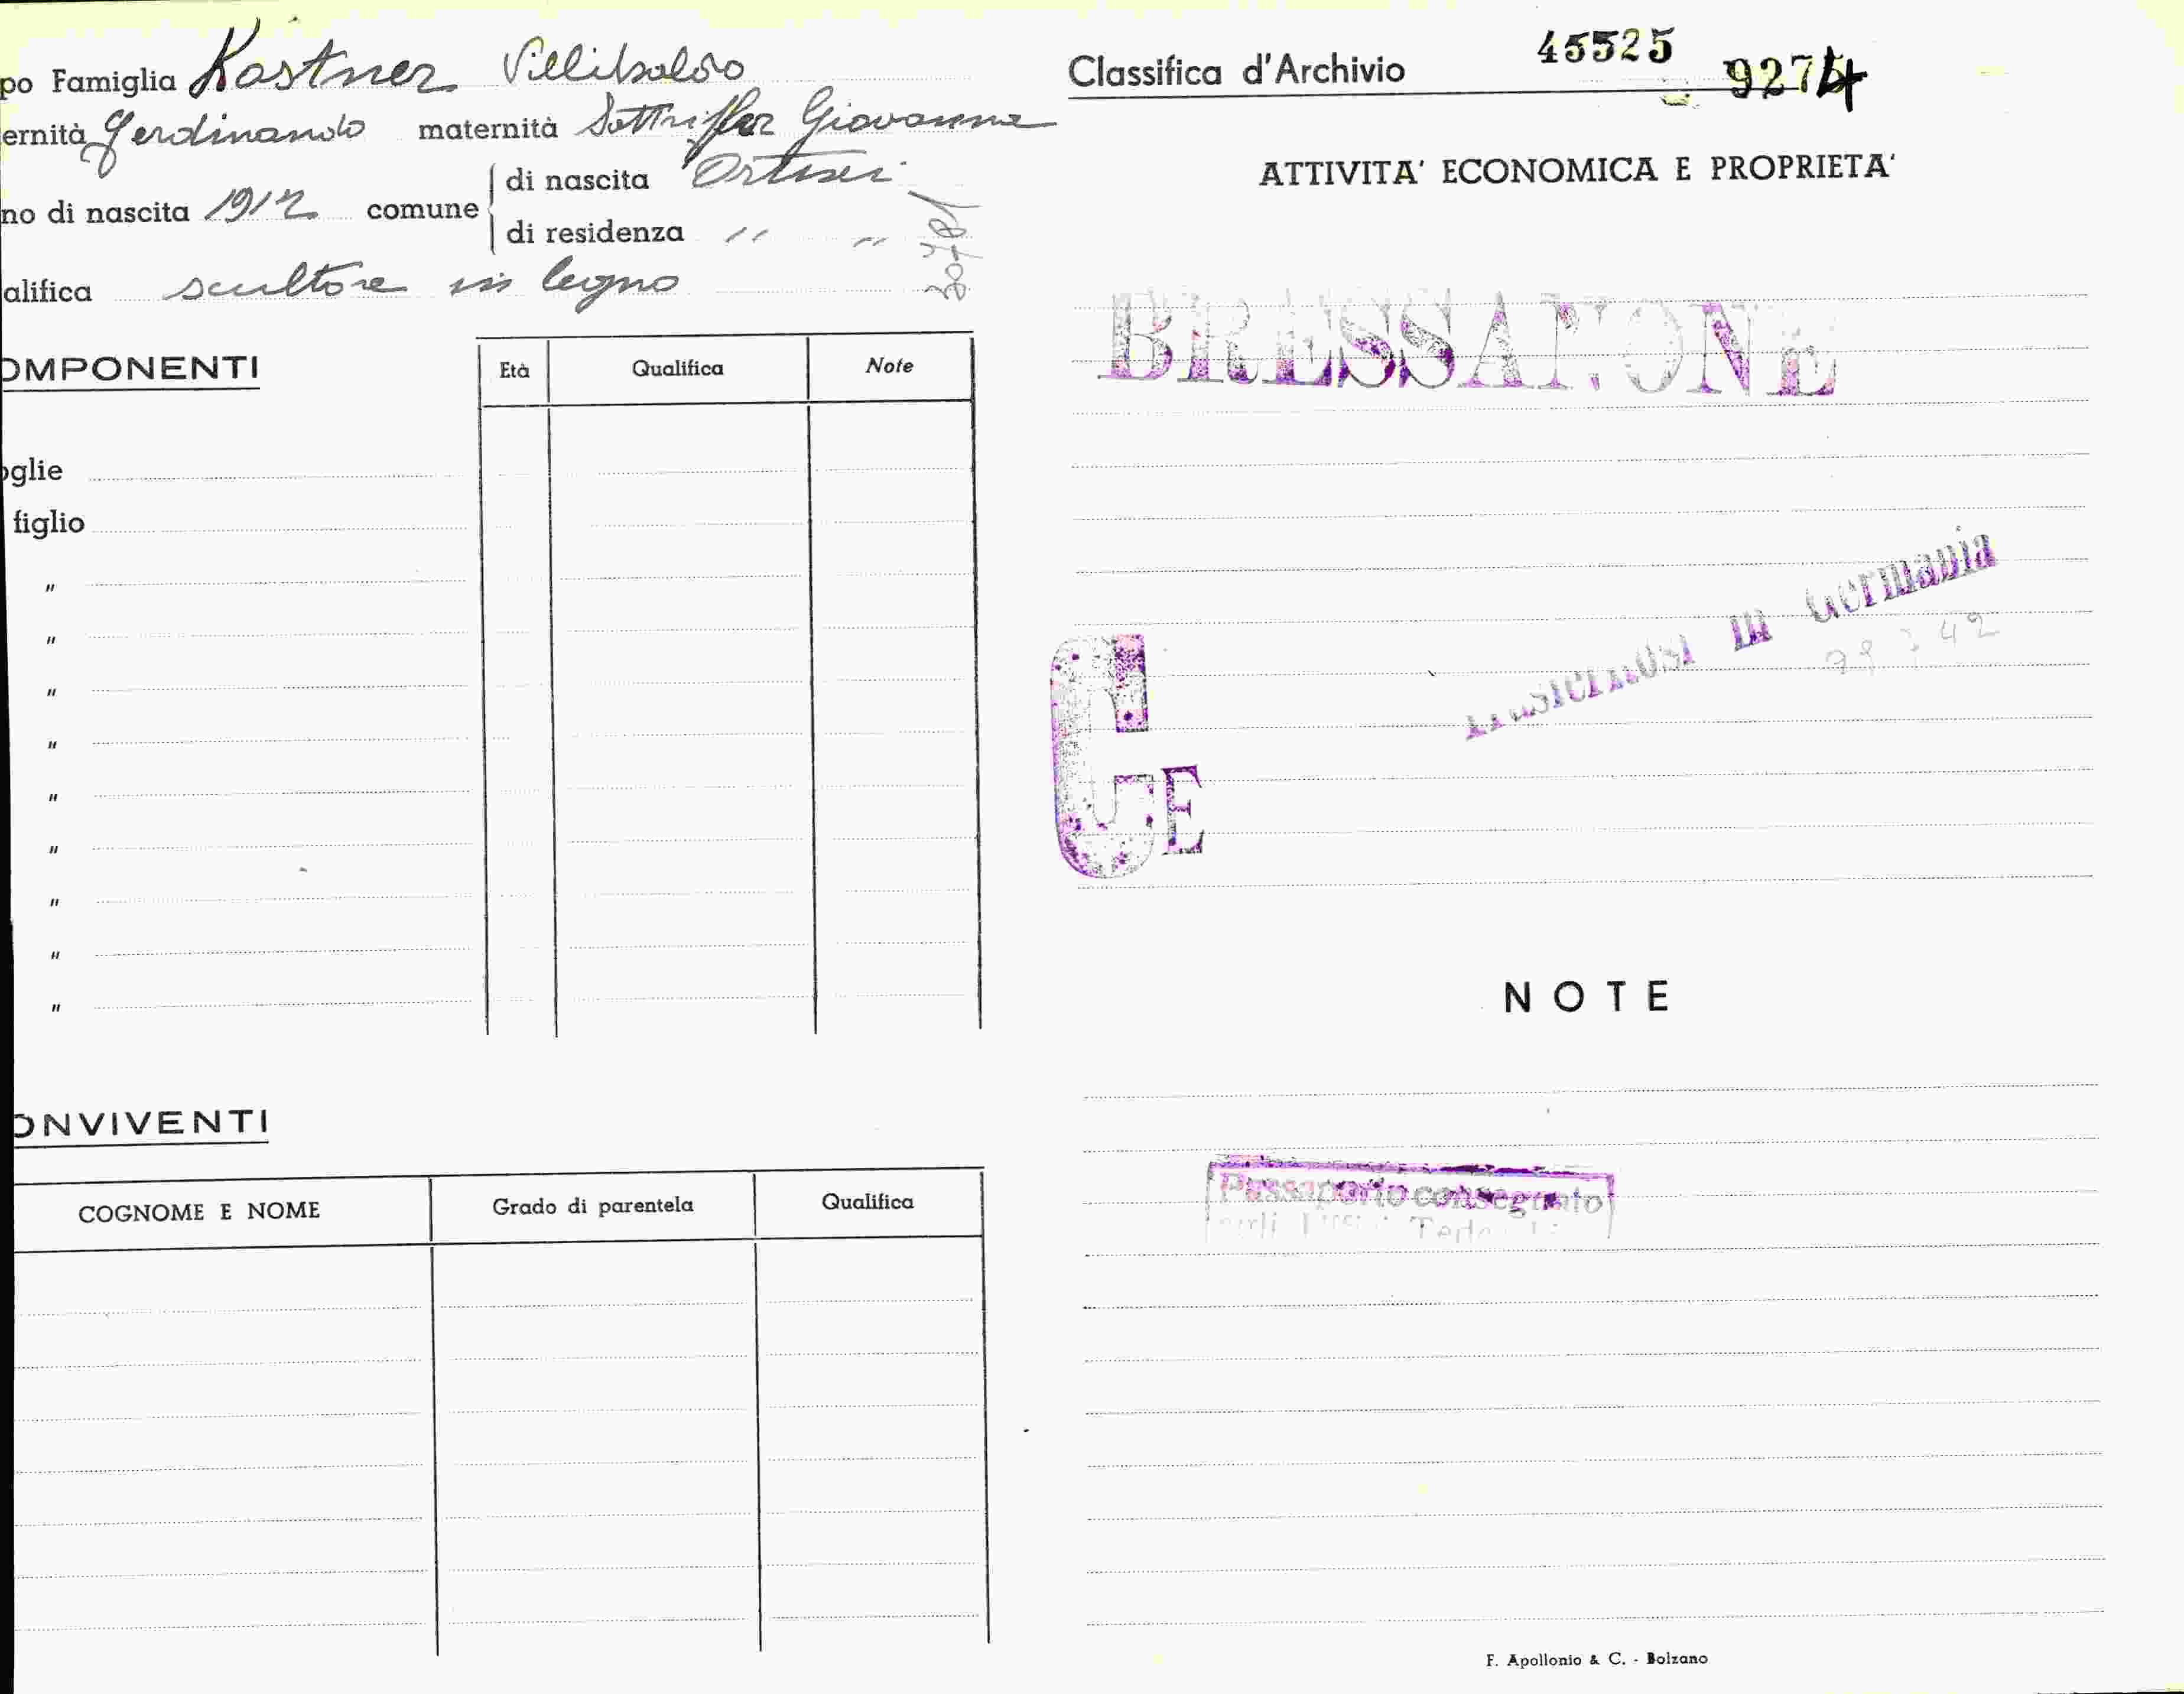 po Famiglia Kastner Villibaldo
ernità Ferdinando maternità Sottriffer Giovanna
no di nascita 1912 comune di nascita Ortisei
di residenza " "
alifica scultore in legno
OMPONENTI
Età Qualifica Note
oglie
figlio
"
"
"
"
"
"
"
"
"
ONVIVENTI
COGNOME E NOME Grado di parentela Qualifica
Classifica d'Archivio 45525 9274
ATTIVITA' ECONOMICA E PROPRIETA'
BRESSANONE
in Germania
42
C E
NOTE
Passaporto consegnato
F. Apollonio & C. - Bolzano